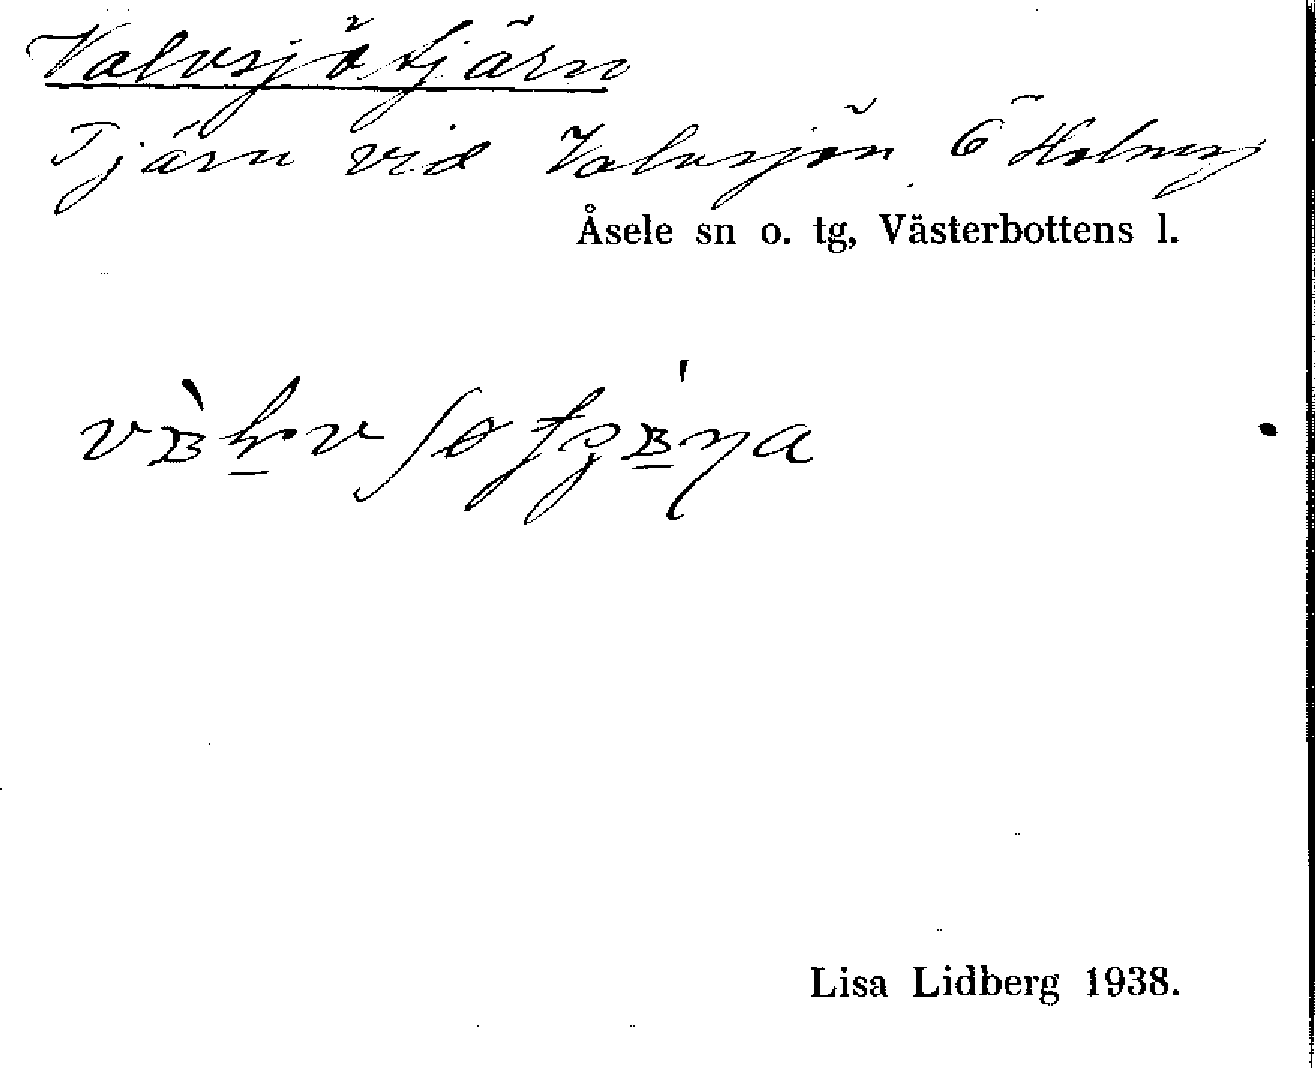 Valvsjötjärn
Tjärn vid Valvsjön Ö Holmsj
Åsele sn o. tg, Västerbottens l.
Lisa Lidberg 1938.